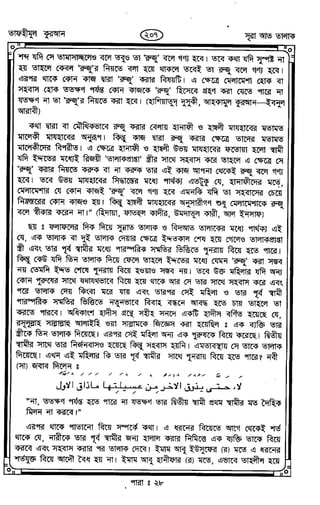 তাফহীমুল কুরআন
২০৭
সূরা আত তালাক
শব্দ যদি সে তামাসাচ্ছলেও বলে তবুও তা 'রুজু' বলে গণ্য হবে। তবে কথা যদি সুস্পষ্ট না
হয় তাহলে কেবল 'রুজু'র নিয়তে বলা হয়ে থাকলে তবেই তা রুজু বলে গণ্য হবে।
এরপর থাকে কোন কাজ দ্বারা 'রুজু' করার বিষয়টি। এ ক্ষেত্রে মেলামেশা হোক বা
সহবাস হোক ততক্ষণ পর্যন্ত কোন কাজকে 'রুজু' হিসেবে গ্রহণ করা যেতে পারে না
যতক্ষণ না তা 'রুজু'র নিয়তে করা হবে। (হাশিয়াতুদ দুসুকী, আহকামুল কুরআন—ইবনুল
আরাবী)
কথা দ্বারা বা মৌখিকভাবে রুজু করার বেলায় হানাফী ও হাম্বলী মাযহাবের মতামত
মালেকী মাযহাবের অনুরূপ। কিন্তু কাজ দ্বারা রুজু করার ক্ষেত্রে তাদের মতামত
মালেকীদের বিপরীত। এ ক্ষেত্রে হানাফী ও হাম্বলী উভয় মাযহাবের ফতোয়া হলো স্বামী
যদি ইদ্দতের মধ্যেই রিজয়ী 'তালাকপ্রাপ্তা' স্ত্রীর সাথে সহবাস করে তাহলে এ ক্ষেত্রে সে
'রুজু' করার নিয়ত করুক বা না করুক তার এই কাজ আপনা থেকেই রুজু বলে গণ্য
হবে। তবে উভয় মাযহাবের সিদ্ধান্তের মধ্যে পার্থক্য এতটুকু যে, হানাফীদের মতে,
মেলামেশার যে কোন কাজই 'রুজু' বলে গণ্য হবে এমনকি যদি তা সহবাসের চেয়ে
নিম্নস্তরের কাজও হয়। কিন্তু হাম্বলী মাযহাবের অনুসারীগণ শুধু মেলামেশাকে রুজু
বলে স্বীকার করেন না।" (হিদায়া, ফাতহুল কাদীর, উমদাতুল কারী, আল ইনসাফ)
ছয় ঃ ফলাফলের দিক দিয়ে সুন্নাত তালাক ও বিদআত তালাকের মধ্যে পার্থক্য এই
যে, এক তালাক বা দুই তালাক দেয়ার ক্ষেত্রে ইদ্দতকাল শেষ হয়ে গেলেও তালাকপ্রাপ্তা
স্ত্রী এবং তার পূর্ব স্বামীর মধ্যে পারস্পরিক সম্মতির ভিত্তিতে পুনরায় বিয়ে হতে পারে।
কিন্তু কেউ যদি তিন তালাক দিয়ে ফেলে তাহলে ইদ্দতের মধ্যে যেমন 'রুজু' করা সম্ভব
নয় তেমনি ইদ্দত শেষে পুনরায় বিয়ে হওয়াও সম্ভব নয়। তবে উক্ত মহিলার যদি অন্য
কোন পুরুষের সাথে যথাযথভাবে বিয়ে হয়ে থাকে আর সে তার সাথে সহবাস করে এবং
পরে তালাক দেয় কিংবা মরে যায় এবং তারপর সেই মহিলা ও তার পূর্ব স্বামী
পারস্পরিক সম্মতির ভিত্তিতে নতুনভাবে বিবাহ বন্ধনে আবদ্ধ হতে চায় তাহলে তা
করতে পারবে। অধিকাংশ হাদীস গ্রন্থে সহীহ সনদে একটি হাদীস বর্ণিত হয়েছে যে,
রসূলুল্লাহ সাল্লাল্লাহু আলাইহি ওয়া সাল্লামকে জিজ্ঞেস করা হয়েছিল ঃ এক ব্যক্তি তার
স্ত্রীকে তিন তালাক দিয়েছে। এরপর সেই মহিলা অন্য এক পুরুষকে বিয়ে করেছে। দ্বিতীয়
স্বামীর সাথে তার নির্জনবাসও হয়েছে কিন্তু সহবাস হয়নি। এমতাবস্থায় সে তাকে তালাক
দিয়েছে। এখন এই মহিলার কি তার পূর্ব স্বামীর সাথে পুনরায় বিয়ে হতে পারে? নবী
(সা) জবাব দিলেন ঃ
لا، حتى يذوق الاخر من عسيلتها ماذاق الاول
"না, ততক্ষণ পর্যন্ত হতে পারে না যতক্ষণ তার দ্বিতীয় স্বামী প্রথম স্বামীর মত দৈহিক
মিলন না করবে।"
এরপর থাকে পাতানো বিয়ে সম্পর্কে কথা। এ ধরনের বিয়েতে আগে থেকেই শর্ত
থাকে যে, নারীকে তার পূর্ব স্বামীর জন্য হালাল করার নিমিত্তে এক ব্যক্তি তাকে বিয়ে
করবে এবং সহবাস করার পর তালাক দেবে। ইমাম আবু ইউসুফের (র) মতে এ ধরনের
শর্তযুক্ত বিয়ে আদৌ বৈধ হয় না। ইমাম আবু হানীফার (র) মতে, এভাবে তাহলীল হয়ে
পারা ঃ ২৮